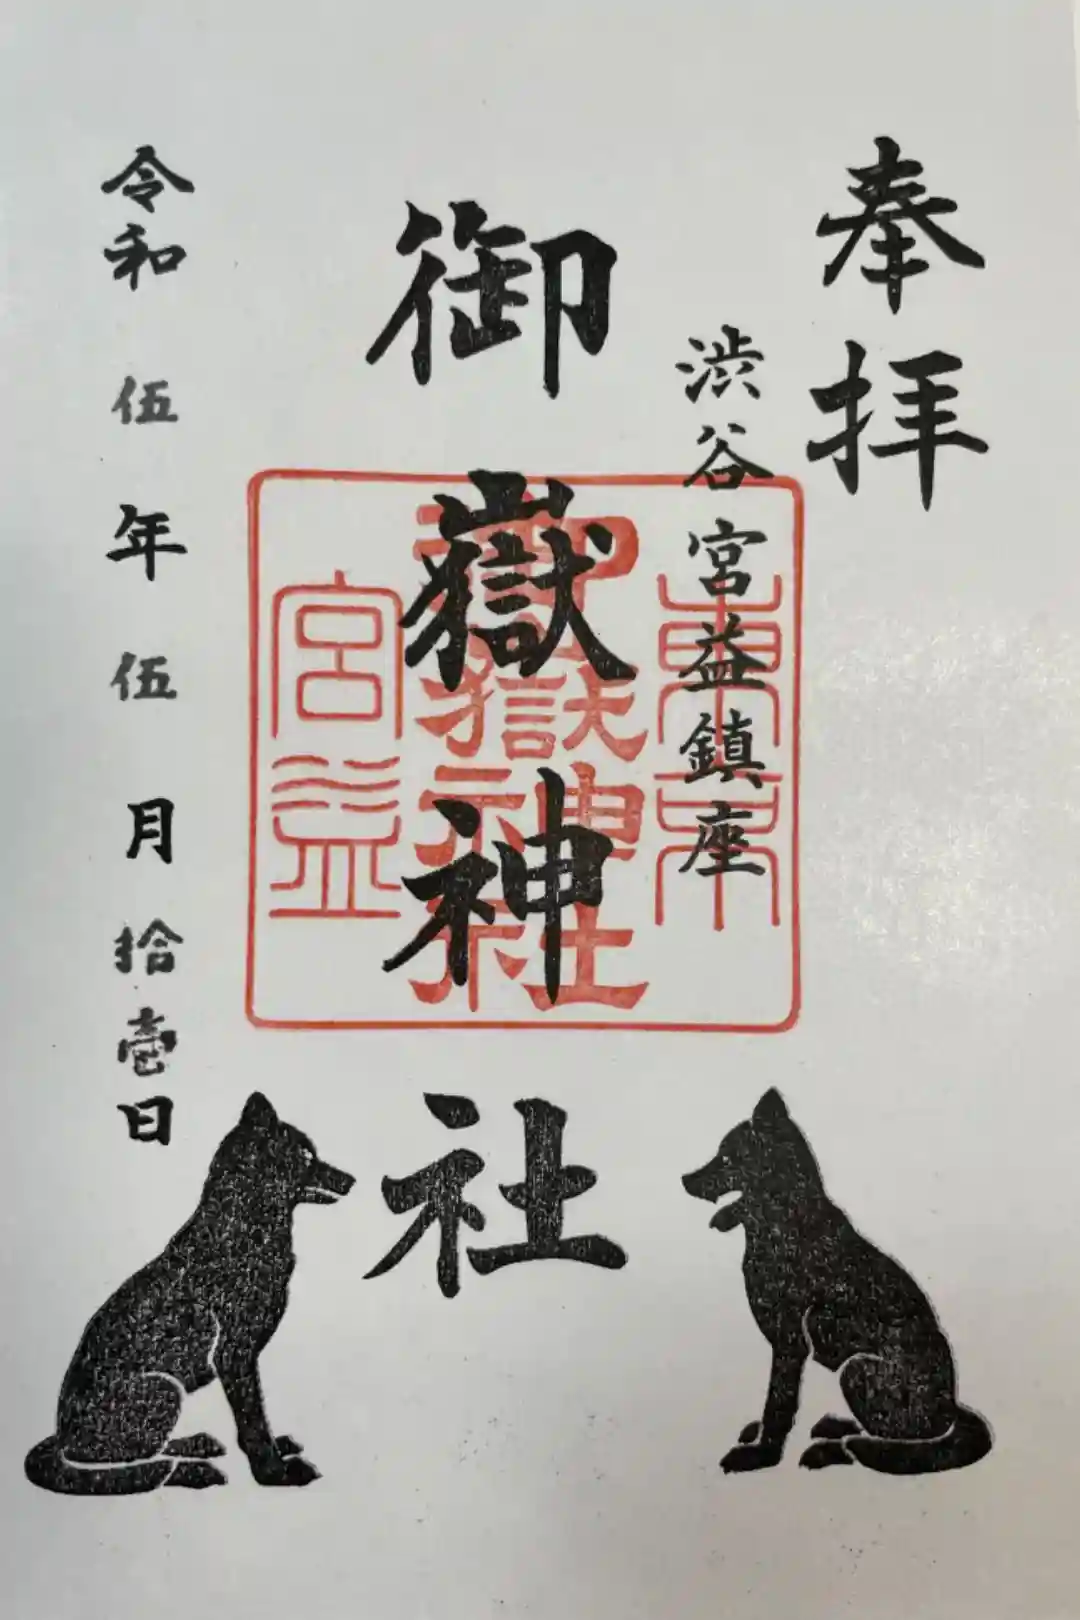 奉拝
渋谷宮益鎮座
御嶽神社
令和伍年伍月拾壱日
東京
御嶽神社
宮益